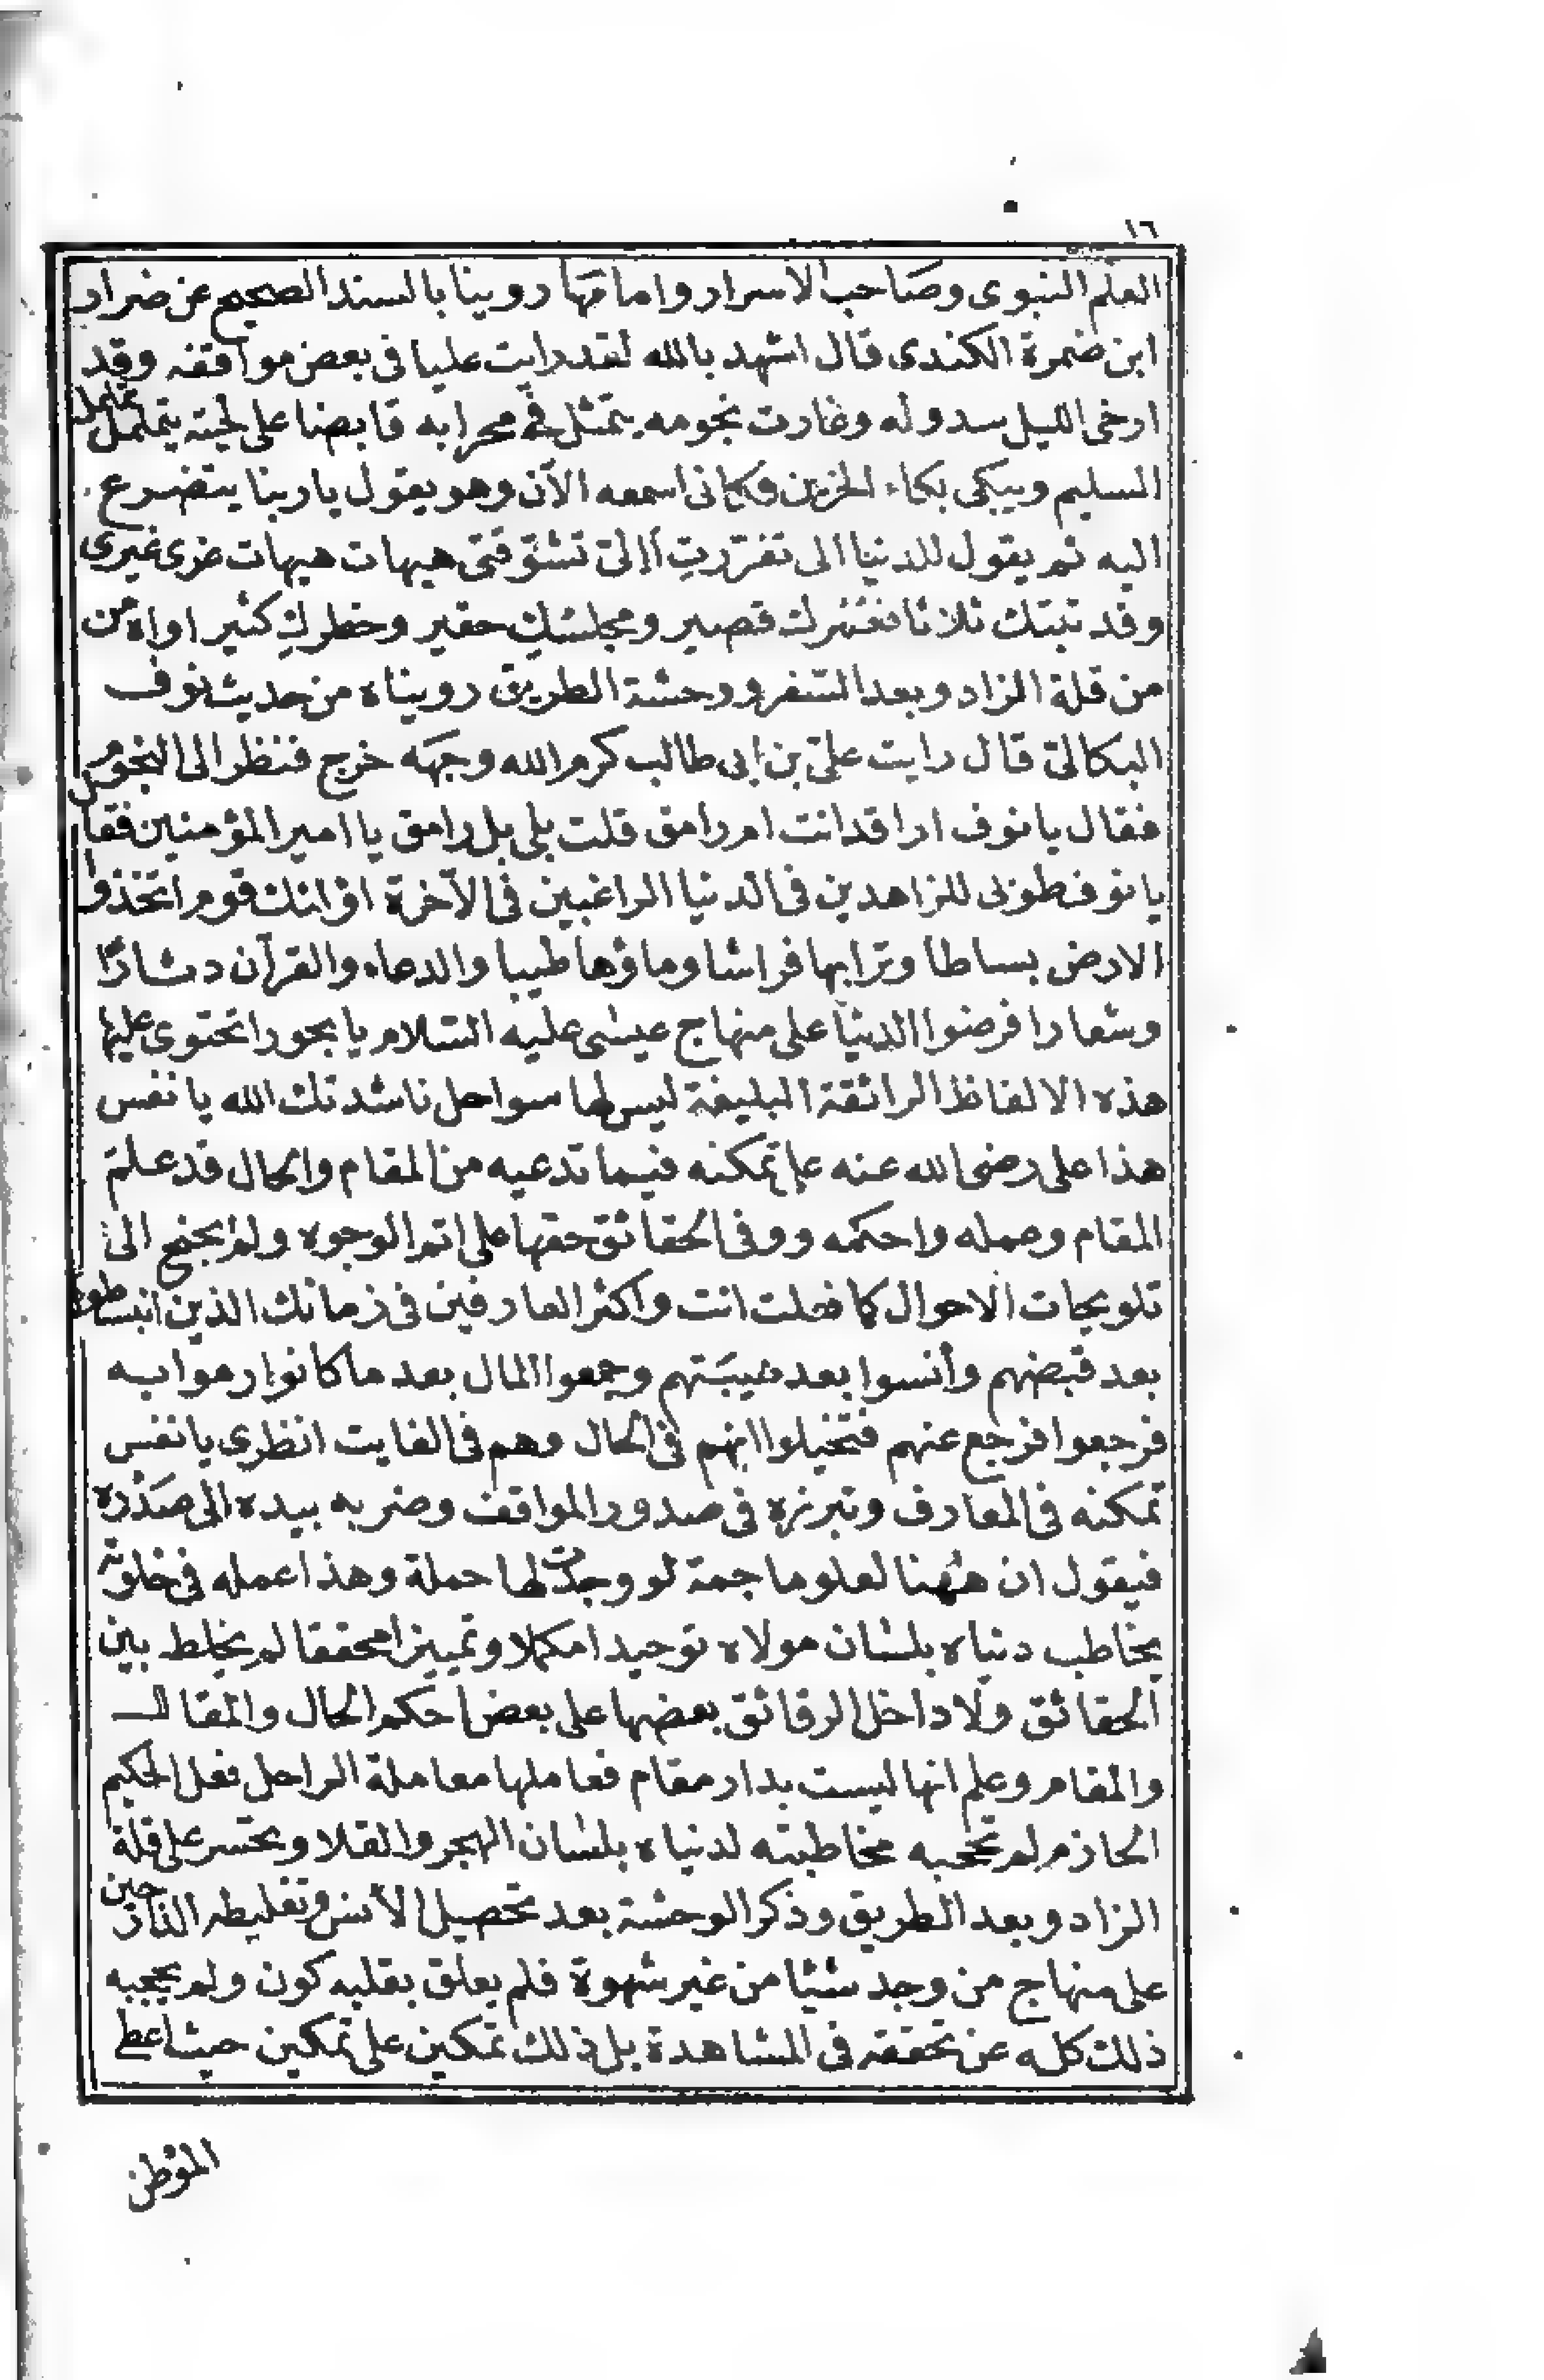 ١٦
العلم النبوى وصاحب الاسرار وامامها روينا بالسند الصحيح عن ضرار
ابن ضمرة الكندى قال اشهد بالله لقد رايت عليا فى بعض مواقفه وقد
ارخى الليل سدوله وغارت نجومه يتمثل فى محرابه قابضا على لحيته يتململ تململ
السليم ويبكى بكاء الحزين فكانى اسمعه الآن وهو يقول يا ربنا يتضرع
اليه ثم يقول للدنيا الى تغرّرتِ أإلىّ تشوّقتى هيهات هيهات غرى غيرى
وقد تبتك ثلاثا فعمرك قصير ومجلسكِ حقير وخطركِ كثير اواه من
من قلة الزاد وبعد السّفر ووحشة الطريق رويناه من حديث نوف
البكالىّ قال رايت علىّ بن ابى طالب كرم الله وجهه خرج فنظر الى النجوم
فقال يا نوف اراقد انت ام رامق قلت بلى بل رامق يا امير المؤمنين فقال
يا نوف طوبى للزاهدين فى الدنيا الراغبين فى الآخرة اولئك قوم اتخذوا
الارض بساطا وترابها فراشا وماؤها طيبا والدعاء والقرآن دثارًا
وشعارا فرضوا الدنيا على منهاج عيسى عليه السّلام يا بحورا تحتوى عليها
هذه الالفاظ الرائقة البليغة ليس لها سواحل ناشدتك الله يا نفس
هذا على رضى الله عنه على تمكنه فيما تدعيه من المقام والحال قد علم
المقام وعمله واحكمه ووفى الحقائق حقها على اتم الوجوه ولم يجنح الى
تلويحات الاحوال كما فعلت انت واكثر العارفين فى زمانك الذين انبسطوا
بعد قبضهم وأنسوا بعد هيبَتهم وجمعوا المال بعد ما كانوا رموا به
فرجعوا فرجع عنهم فتخيلوا انهم فى الحال وهم فى الفايت انظرى يا نفس
تمكنه فى المعارف وتبرزه فى صدور المواقف وضربه بيده الى صدره
فيقول ان ههنا لعلوما جمة لو وجدت لها حملة وهذا عمله فى خلوته
يخاطب دنياه بلسان مولاه توحيدا مكملا وتمييزا محققا لم يخلط بين
الحقائق ولا داخل الرقائق بعضها على بعض احكم الحال والمقال
والمقام وعلم انها ليست بدار مقام فعاملها معاملة الراحل فعل الحكيم
الحازم لم تحجبه مخاطبته لدنياه بلسان الهجر والقلا وتحسر على قلة
الزاد وبعد الطريق وذكر الوحشة بعد تحصيل الأنس وتغليطه النازحين
على منهاج من وجد شيئا من غير شهوة فلم يعلق بقلبه كون ولم يحجبه
ذلك كله عن تحققه فى المشاهدة بل ذلك تمكين على تمكين حيث اعطى
الموطن